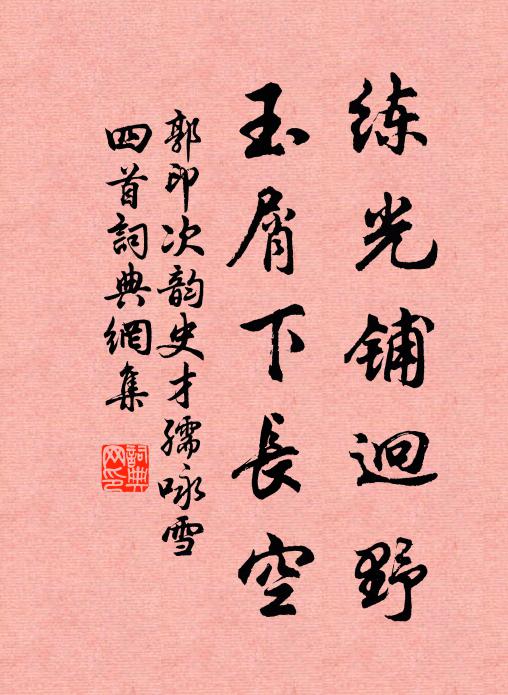 练光铺迥野
玉屑下長空
郭印次韵史才孺咏雪
四首詞典網集
詞典网印